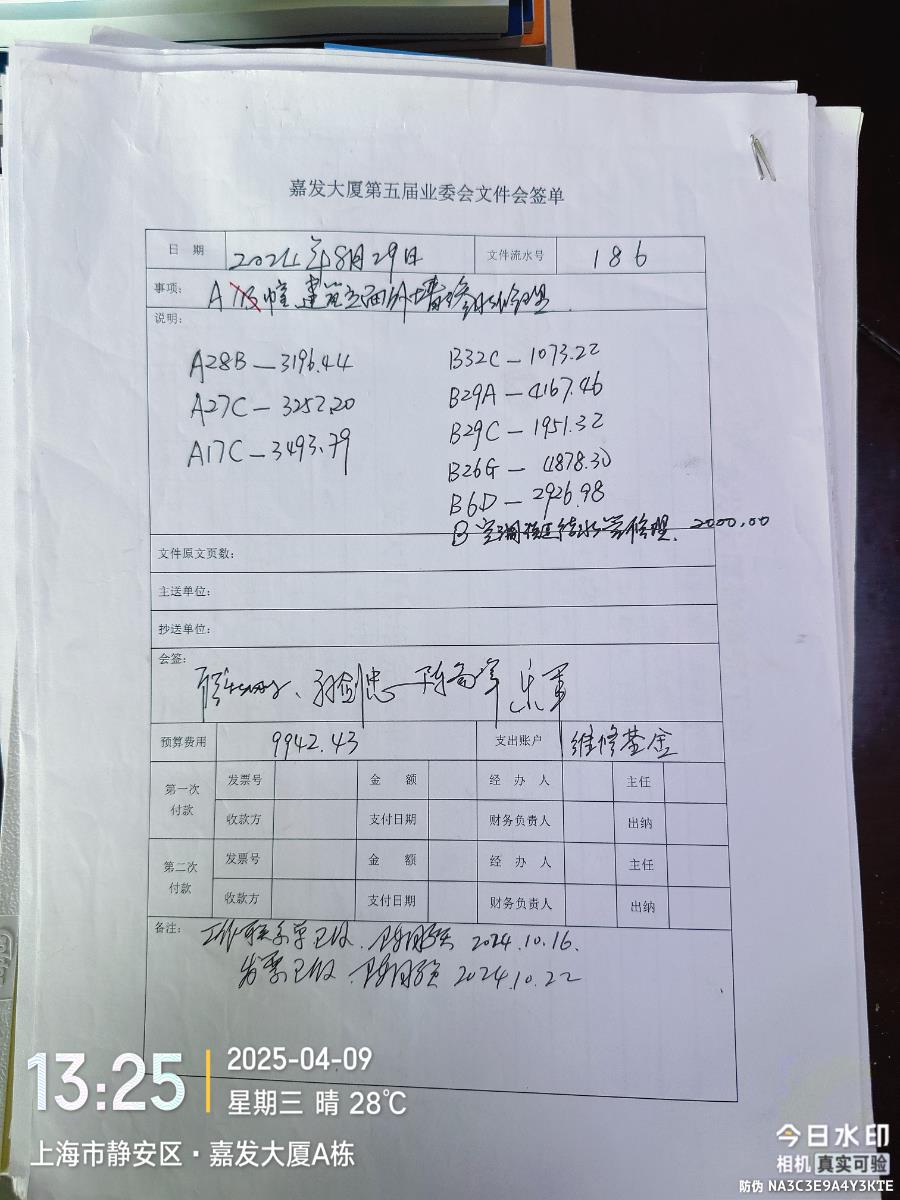 嘉发大厦第五届业委会文件会签单
日 期 2024年8月29日 文件流水号 186
事项: A 幢建筑立面外墙渗水修理.
说明:
A28B—3196.44 B32C—1073.22
A27C—3252.20 B29A—4167.46
A17C—3493.79 B29C—1951.32
B26G—4878.30
B6D—2926.98
B 修理. 2000.00
文件原文页数:
主送单位:
抄送单位:
会签:
预算费用 9942.43 支出账户 维修基金
第一次付款 发票号 金 额 经 办 人 主任
收款方 支付日期 财务负责人 出纳
第二次付款 发票号 金 额 经 办 人 主任
收款方 支付日期 财务负责人 出纳
备注: 工作联系单已收. 2024.10.16.
发票已收. 2024.10.22
13:25
2025-04-09
星期三 晴 28℃
上海市静安区·嘉发大厦A栋
今日水印
相机 真实可验
防伪 NA3C3E9A4Y3KTE